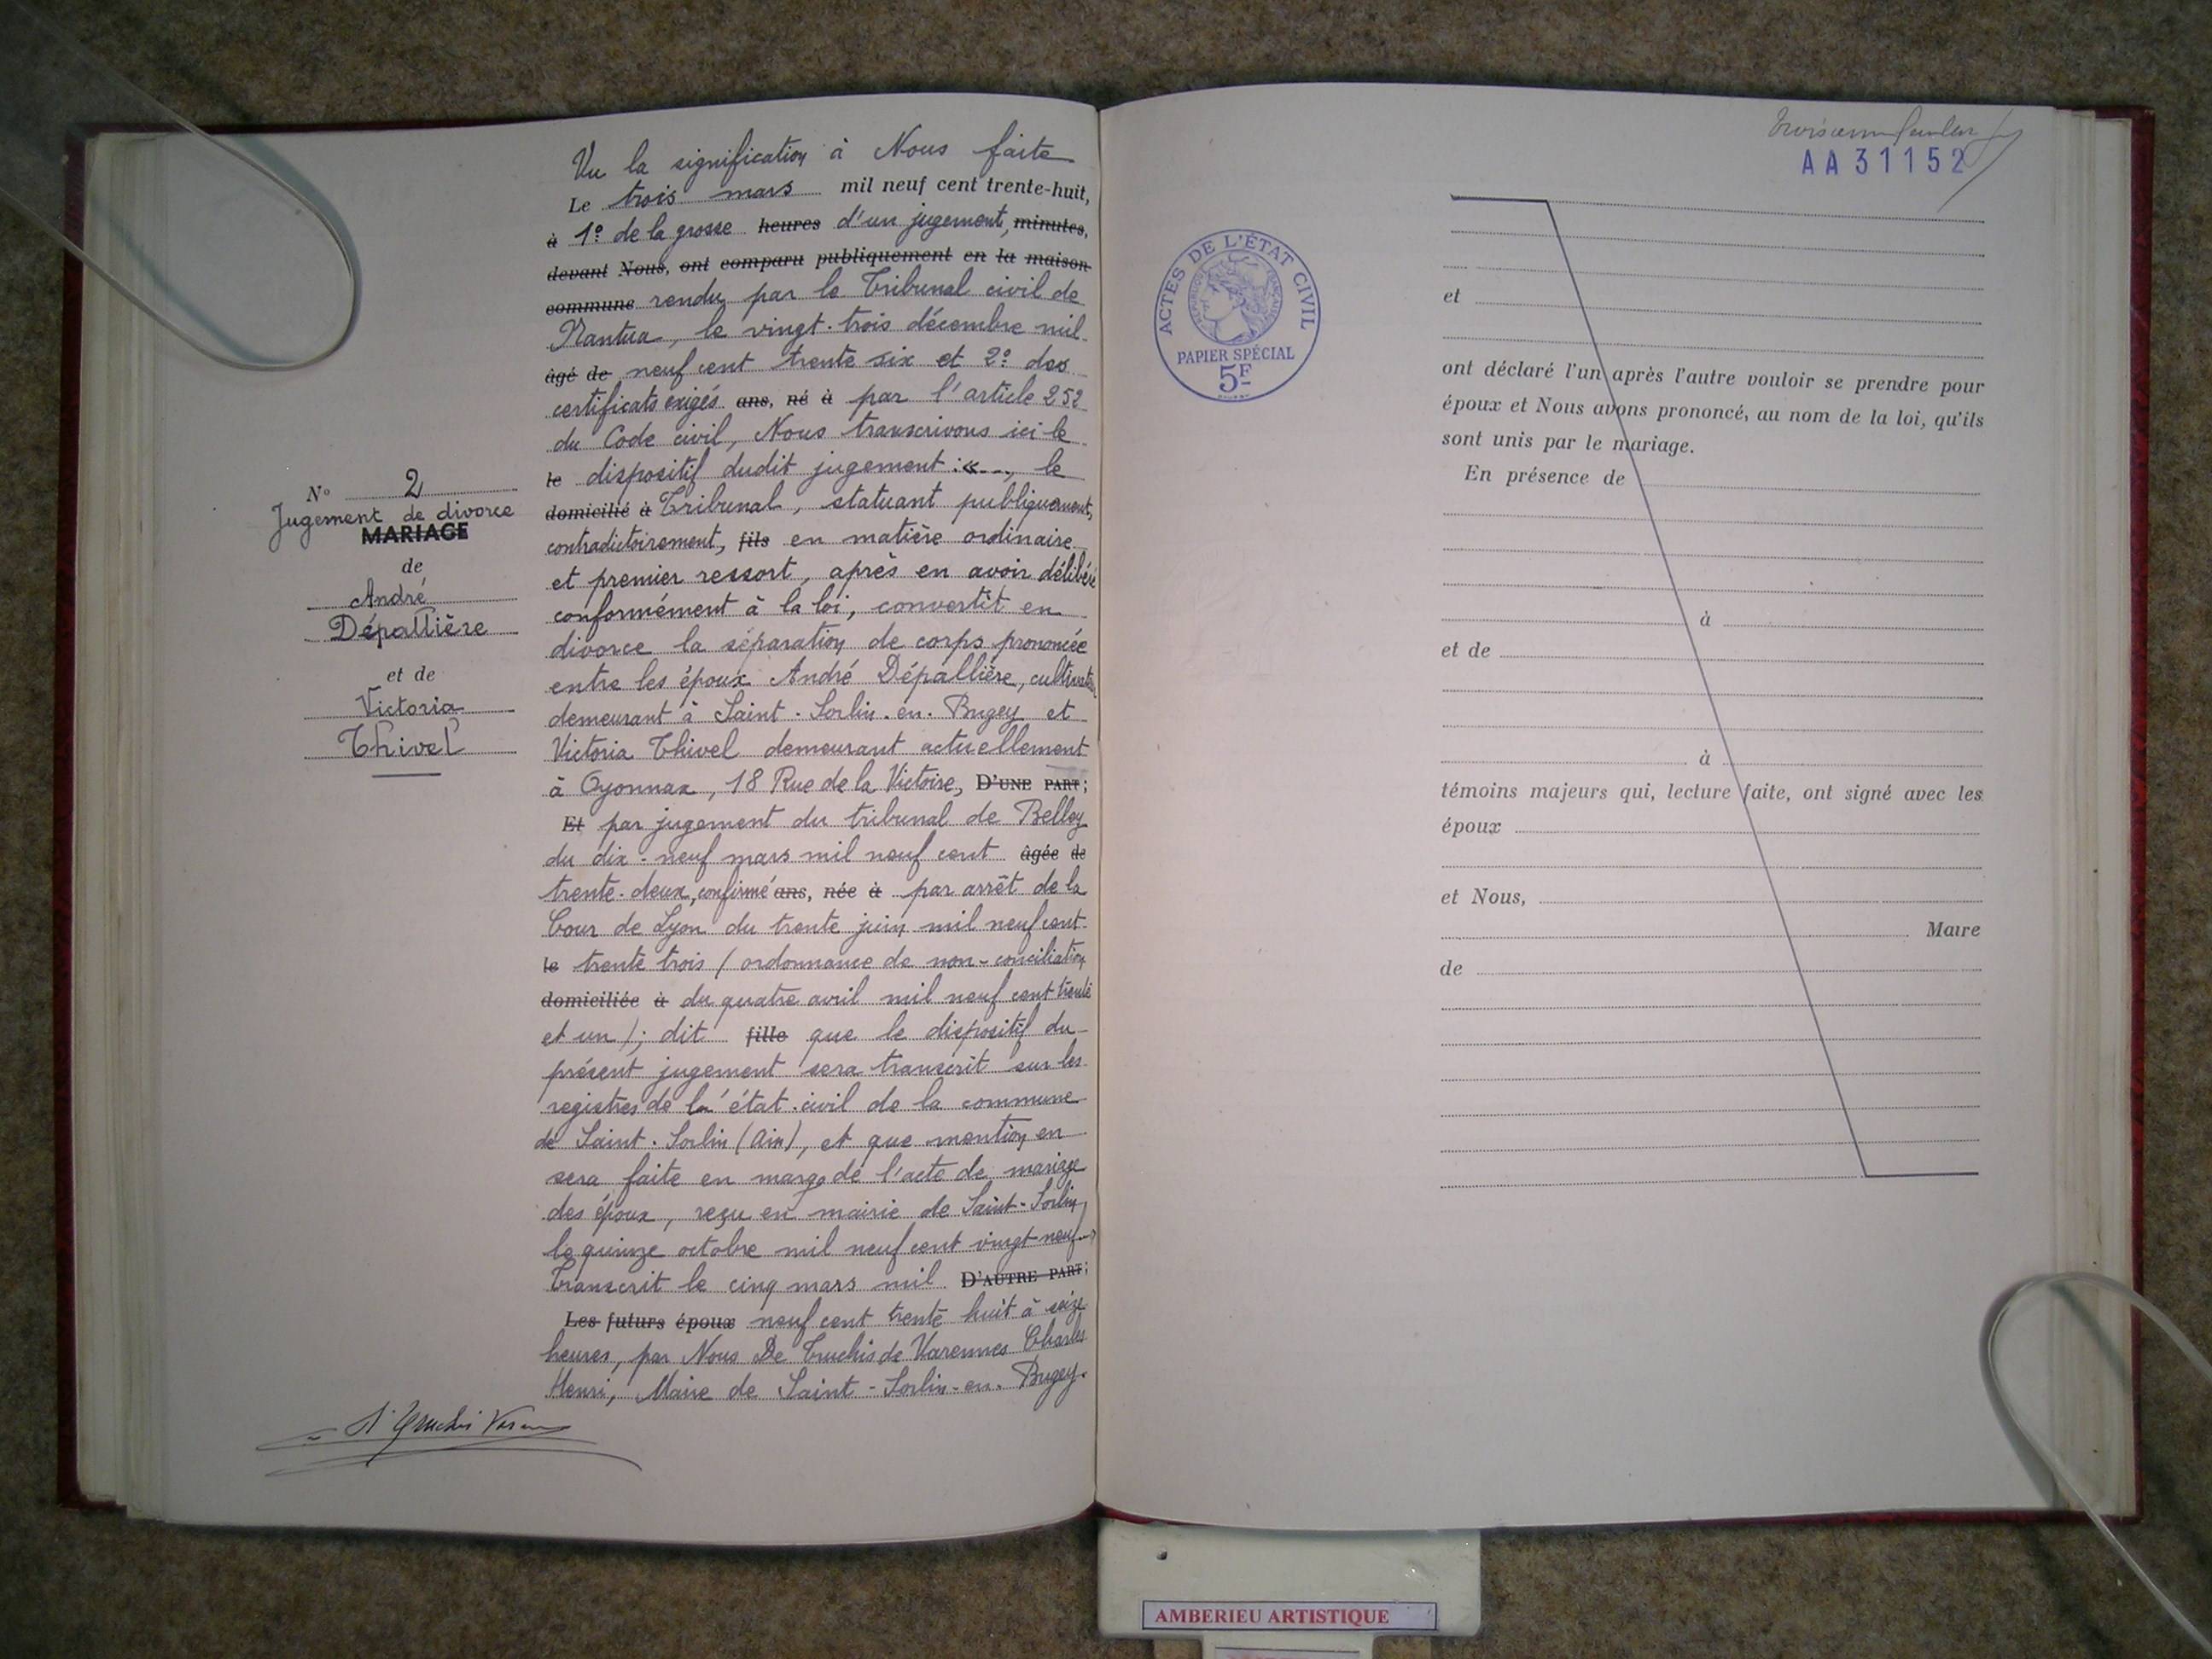 N° 2
Jugement de divorce
MARIAGE
de
André
Dépallière
et de
Victoria
Thivel
Vu la signification à Nous faite
Le trois mars mil neuf cent trente-huit,
à 1° de la grosse heures d'un jugement, minutes,
devant Nous, ont comparu publiquement en la maison
commune rendu par le Tribunal civil de
Nantua, le vingt-trois décembre mil
âgé de neuf cent trente six et 2° des
certificats exigés ans, né à par l'article 252
du Code civil, Nous transcrivons ici le
le dispositif dudit jugement : «..., le
domicilié à Tribunal, statuant publiquement,
contradictoirement, fils en matière ordinaire
et premier ressort, après en avoir délibéré
conformément à la loi, convertit en
divorce la séparation de corps prononcée
entre les époux André Dépallière, cultivateur,
demeurant à Saint-Sorlin-en-Bugey et
Victoria Thivel demeurant actuellement
à Oyonnax, 18 Rue de la Victoire, D'UNE PART;
Et par jugement du tribunal de Belley
du dix-neuf mars mil neuf cent âgée de
trente-deux, confirmé ans, née à par arrêt de la
Cour de Lyon du trente juin mil neuf cent
le trente trois (ordonnance de non-conciliation
domiciliée à du quatre avril mil neuf cent trente
et un); dit fille que le dispositif du
présent jugement sera transcrit sur les
registres de la état-civil de la commune
de Saint-Sorlin (Ain), et que mention en
sera faite en marge de l'acte de mariage
des époux, reçu en mairie de Saint-Sorlin,
le quinze octobre mil neuf cent vingt-neuf.»
Transcrit le cinq mars mil D'AUTRE PART;
Les futurs époux neuf cent trente huit à seize
heures, par Nous De Truchis de Varennes Charles
Henri, Maire de Saint-Sorlin-en-Bugey.
AA 31152
ACTES DE L'ÉTAT CIVIL
RÉPUBLIQUE FRANÇAISE
PAPIER SPÉCIAL
5F
et
ont déclaré l'un après l'autre vouloir se prendre pour
époux et Nous avons prononcé, au nom de la loi, qu'ils
sont unis par le mariage.
En présence de
à
et de
à
témoins majeurs qui, lecture faite, ont signé avec les
époux
et Nous,
Maire
de
AMBERIEU ARTISTIQUE